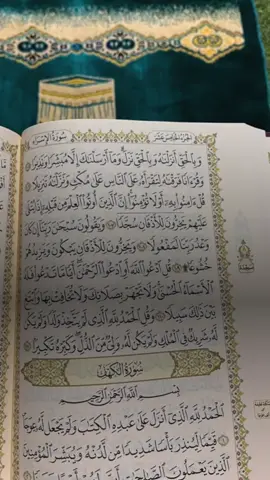 سُورَةُ الإِسْرَاءِ
الجُزْءُ الخَامِسَ عَشَرَ
وَبِالْحَقِّ أَنزَلْنَاهُ وَبِالْحَقِّ نَزَلَ وَمَا أَرْسَلْنَاكَ إِلَّا مُبَشِّرًا وَنَذِيرًا ١٠٥
وَقُرْآنًا فَرَقْنَاهُ لِتَقْرَأَهُ عَلَى النَّاسِ عَلَى مُكْثٍ وَنَزَّلْنَاهُ تَنزِيلًا ١٠٦
قُلْ آمِنُوا بِهِ أَوْ لَا تُؤْمِنُوا إِنَّ الَّذِينَ أُوتُوا الْعِلْمَ مِن قَبْلِهِ إِذَا يُتْلَى
عَلَيْهِمْ يَخِرُّونَ لِلْأَذْقَانِ سُجَّدًا ١٠٧ وَيَقُولُونَ سُبْحَانَ رَبِّنَا إِن كَانَ
وَعْدُ رَبِّنَا لَمَفْعُولًا ١٠٨ وَيَخِرُّونَ لِلْأَذْقَانِ يَبْكُونَ وَيَزِيدُهُمْ
خُشُوعًا ۩ ١٠٩ قُلِ ادْعُوا اللَّهَ أَوِ ادْعُوا الرَّحْمَنَ أَيًّا مَّا تَدْعُوا فَلَهُ
الْأَسْمَاءُ الْحُسْنَى وَلَا تَجْهَرْ بِصَلَاتِكَ وَلَا تُخَافِتْ بِهَا وَابْتَغِ
بَيْنَ ذَلِكَ سَبِيلًا ١١٠ وَقُلِ الْحَمْدُ لِلَّهِ الَّذِي لَمْ يَتَّخِذْ وَلَدًا وَلَمْ يَكُن
لَّهُ شَرِيكٌ فِي الْمُلْكِ وَلَمْ يَكُن لَّهُ وَلِيٌّ مِّنَ الذُّلِّ وَكَبِّرْهُ تَكْبِيرًا ١١١
سُورَةُ الكَهْفِ
بِسْمِ اللَّهِ الرَّحْمَنِ الرَّحِيمِ
الْحَمْدُ لِلَّهِ الَّذِي أَنزَلَ عَلَى عَبْدِهِ الْكِتَابَ وَلَمْ يَجْعَل لَّهُ عِوَجًا ١
قَيِّمًا لِّيُنذِرَ بَأْسًا شَدِيدًا مِّن لَّدُنْهُ وَيُبَشِّرَ الْمُؤْمِنِينَ
الَّذِينَ يَعْمَلُونَ الصَّالِحَاتِ